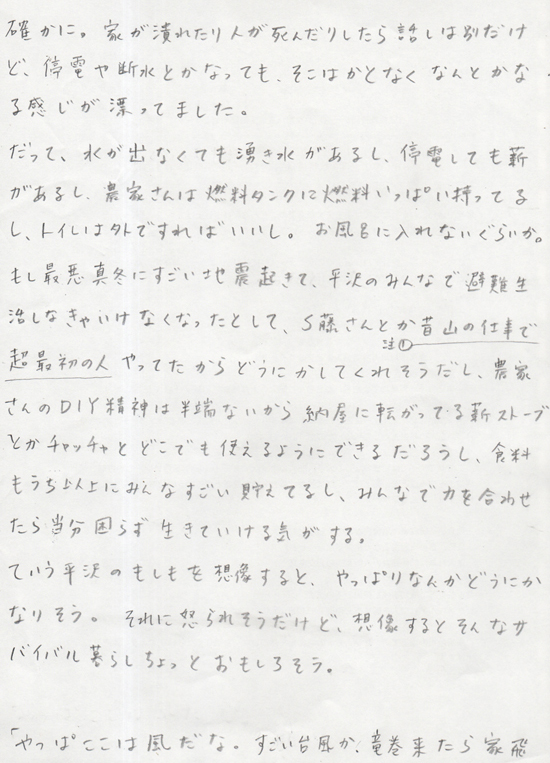 確かに。家が潰れたり人が死んだりしたら話しは別だけ
ど、停電や断水とかなっても、そこはかとなくなんとかな
る感じが漂ってました。
だって、水が出なくても湧き水があるし、停電しても薪
があるし、農家さんは燃料タンクに燃料いっぱい持ってる
し、トイレは外ですればいいし。お風呂に入れないぐらいか。
もし最悪真冬にすごい地震起きて、平沢のみんなで避難生
活しなきゃいけなくなったとして、S藤さんとか昔山の仕事で
注①
超最初の人やってたからどうにかしてくれそうだし、農家
さんのDIY精神は半端ないから納屋に転がってる薪ストーブ
とかチャッチャとどこでも使えるようにできるだろうし、食料
もうち以上にみんなすごい貯えてるし、みんなで力を合わせ
たら当分困らず生きていける気がする。
ていう平沢のもしもを想像すると、やっぱりなんかどうにか
なりそう。それに怒られそうだけど、想像するとそんなサ
バイバル暮らしちょっとおもしろそう。
「やっぱここは風だな。すごい台風か、竜巻来たら家飛